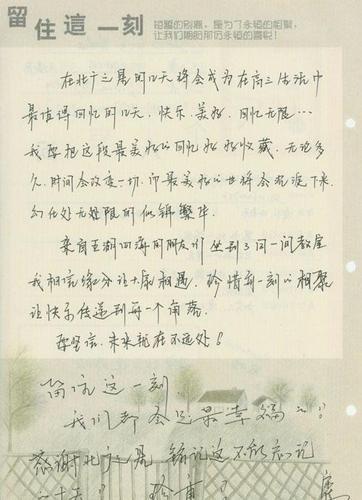 留住這一刻
短暫的別離，是为了永恒的相聚，
让我们期盼那份永恒的喜悦！
在北广之晨的几天将会成为在高三生活中
最值得回忆的几天，快乐、美好，回忆无限…
我要把这段最美好的回忆好好收藏，无论多
久，时间会改变一切，而最美好的也将会沉淀下来，
幻化出无限的似锦繁华。
来自五湖四海的朋友们坐到了同一间教室
我相信缘分让大家相遇，珍惜每一刻的相聚
让快乐传递到每一个角落。
要坚信，未来就在不远处！
留住这一刻
我们都会是最幸福的！
感谢北广之晨 铭记这不能忘记